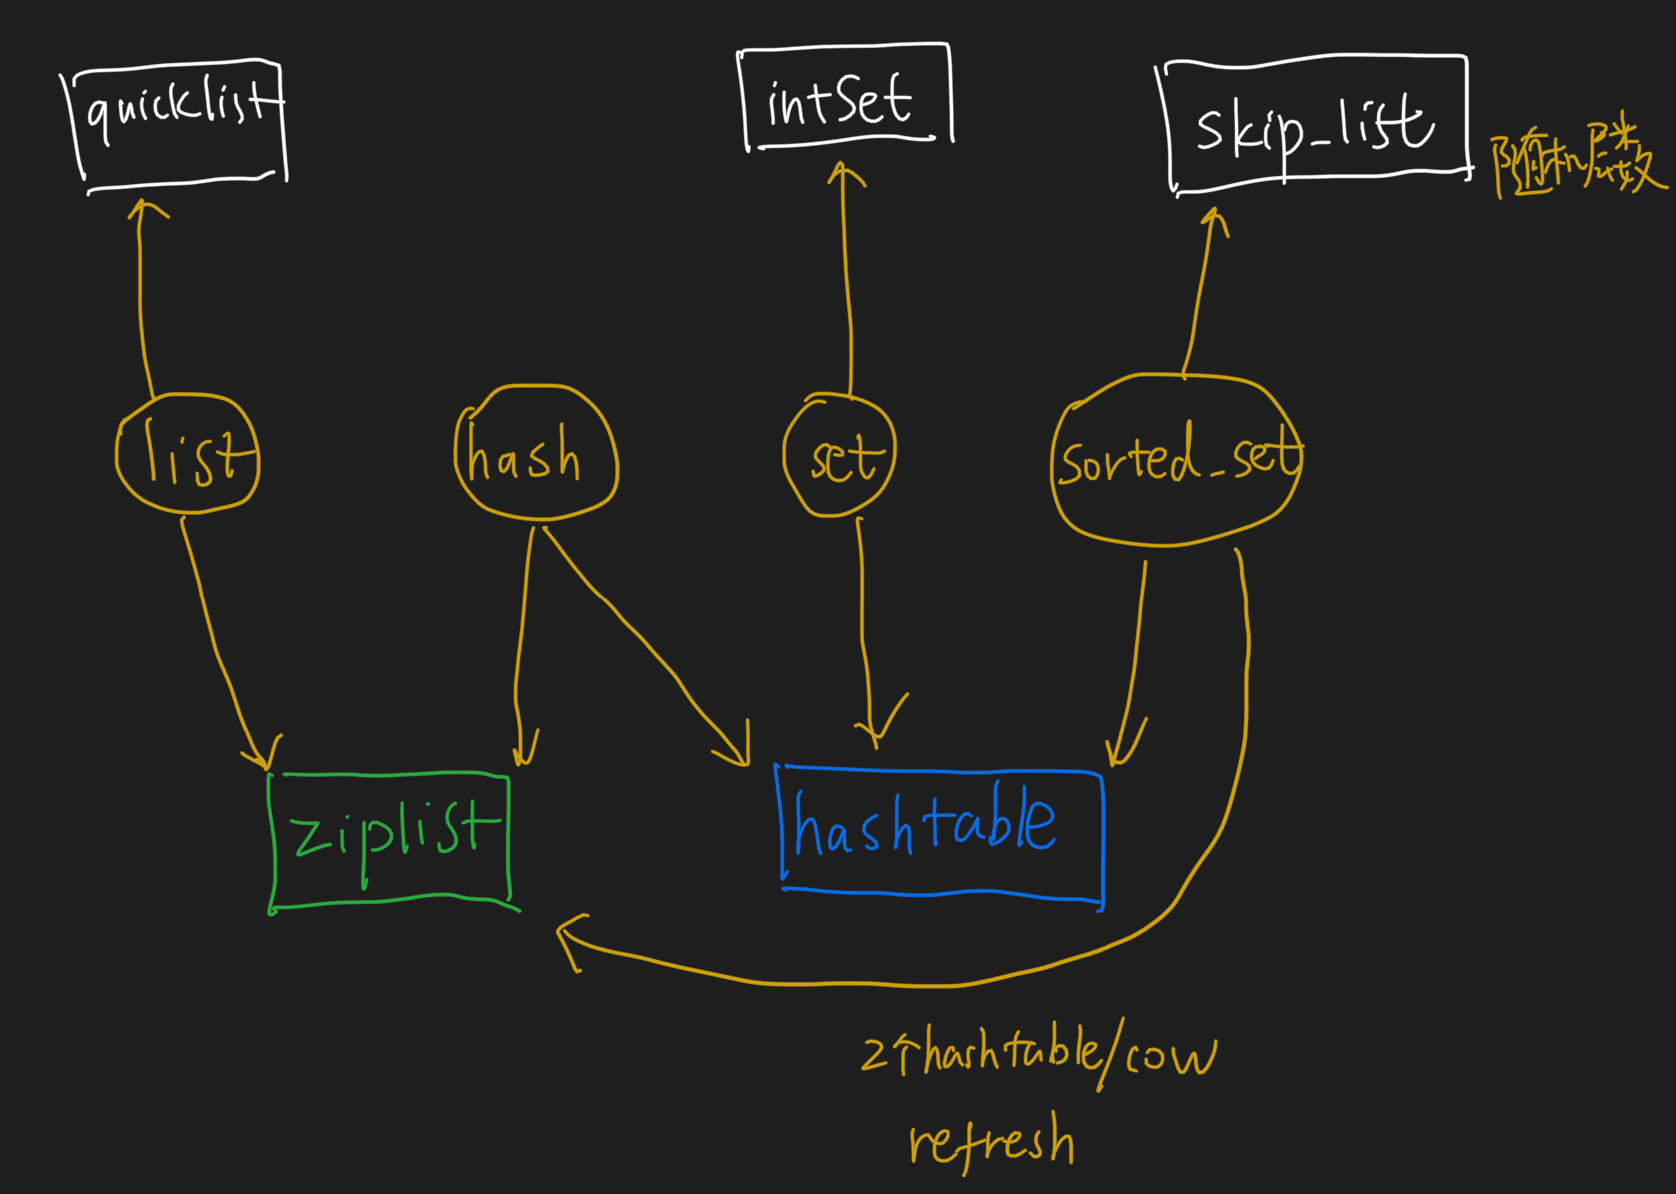 quicklist
intSet
skip_list
随机层数
list
hash
set
sorted_set
ziplist
hashtable
2个hashtable/cow
refresh